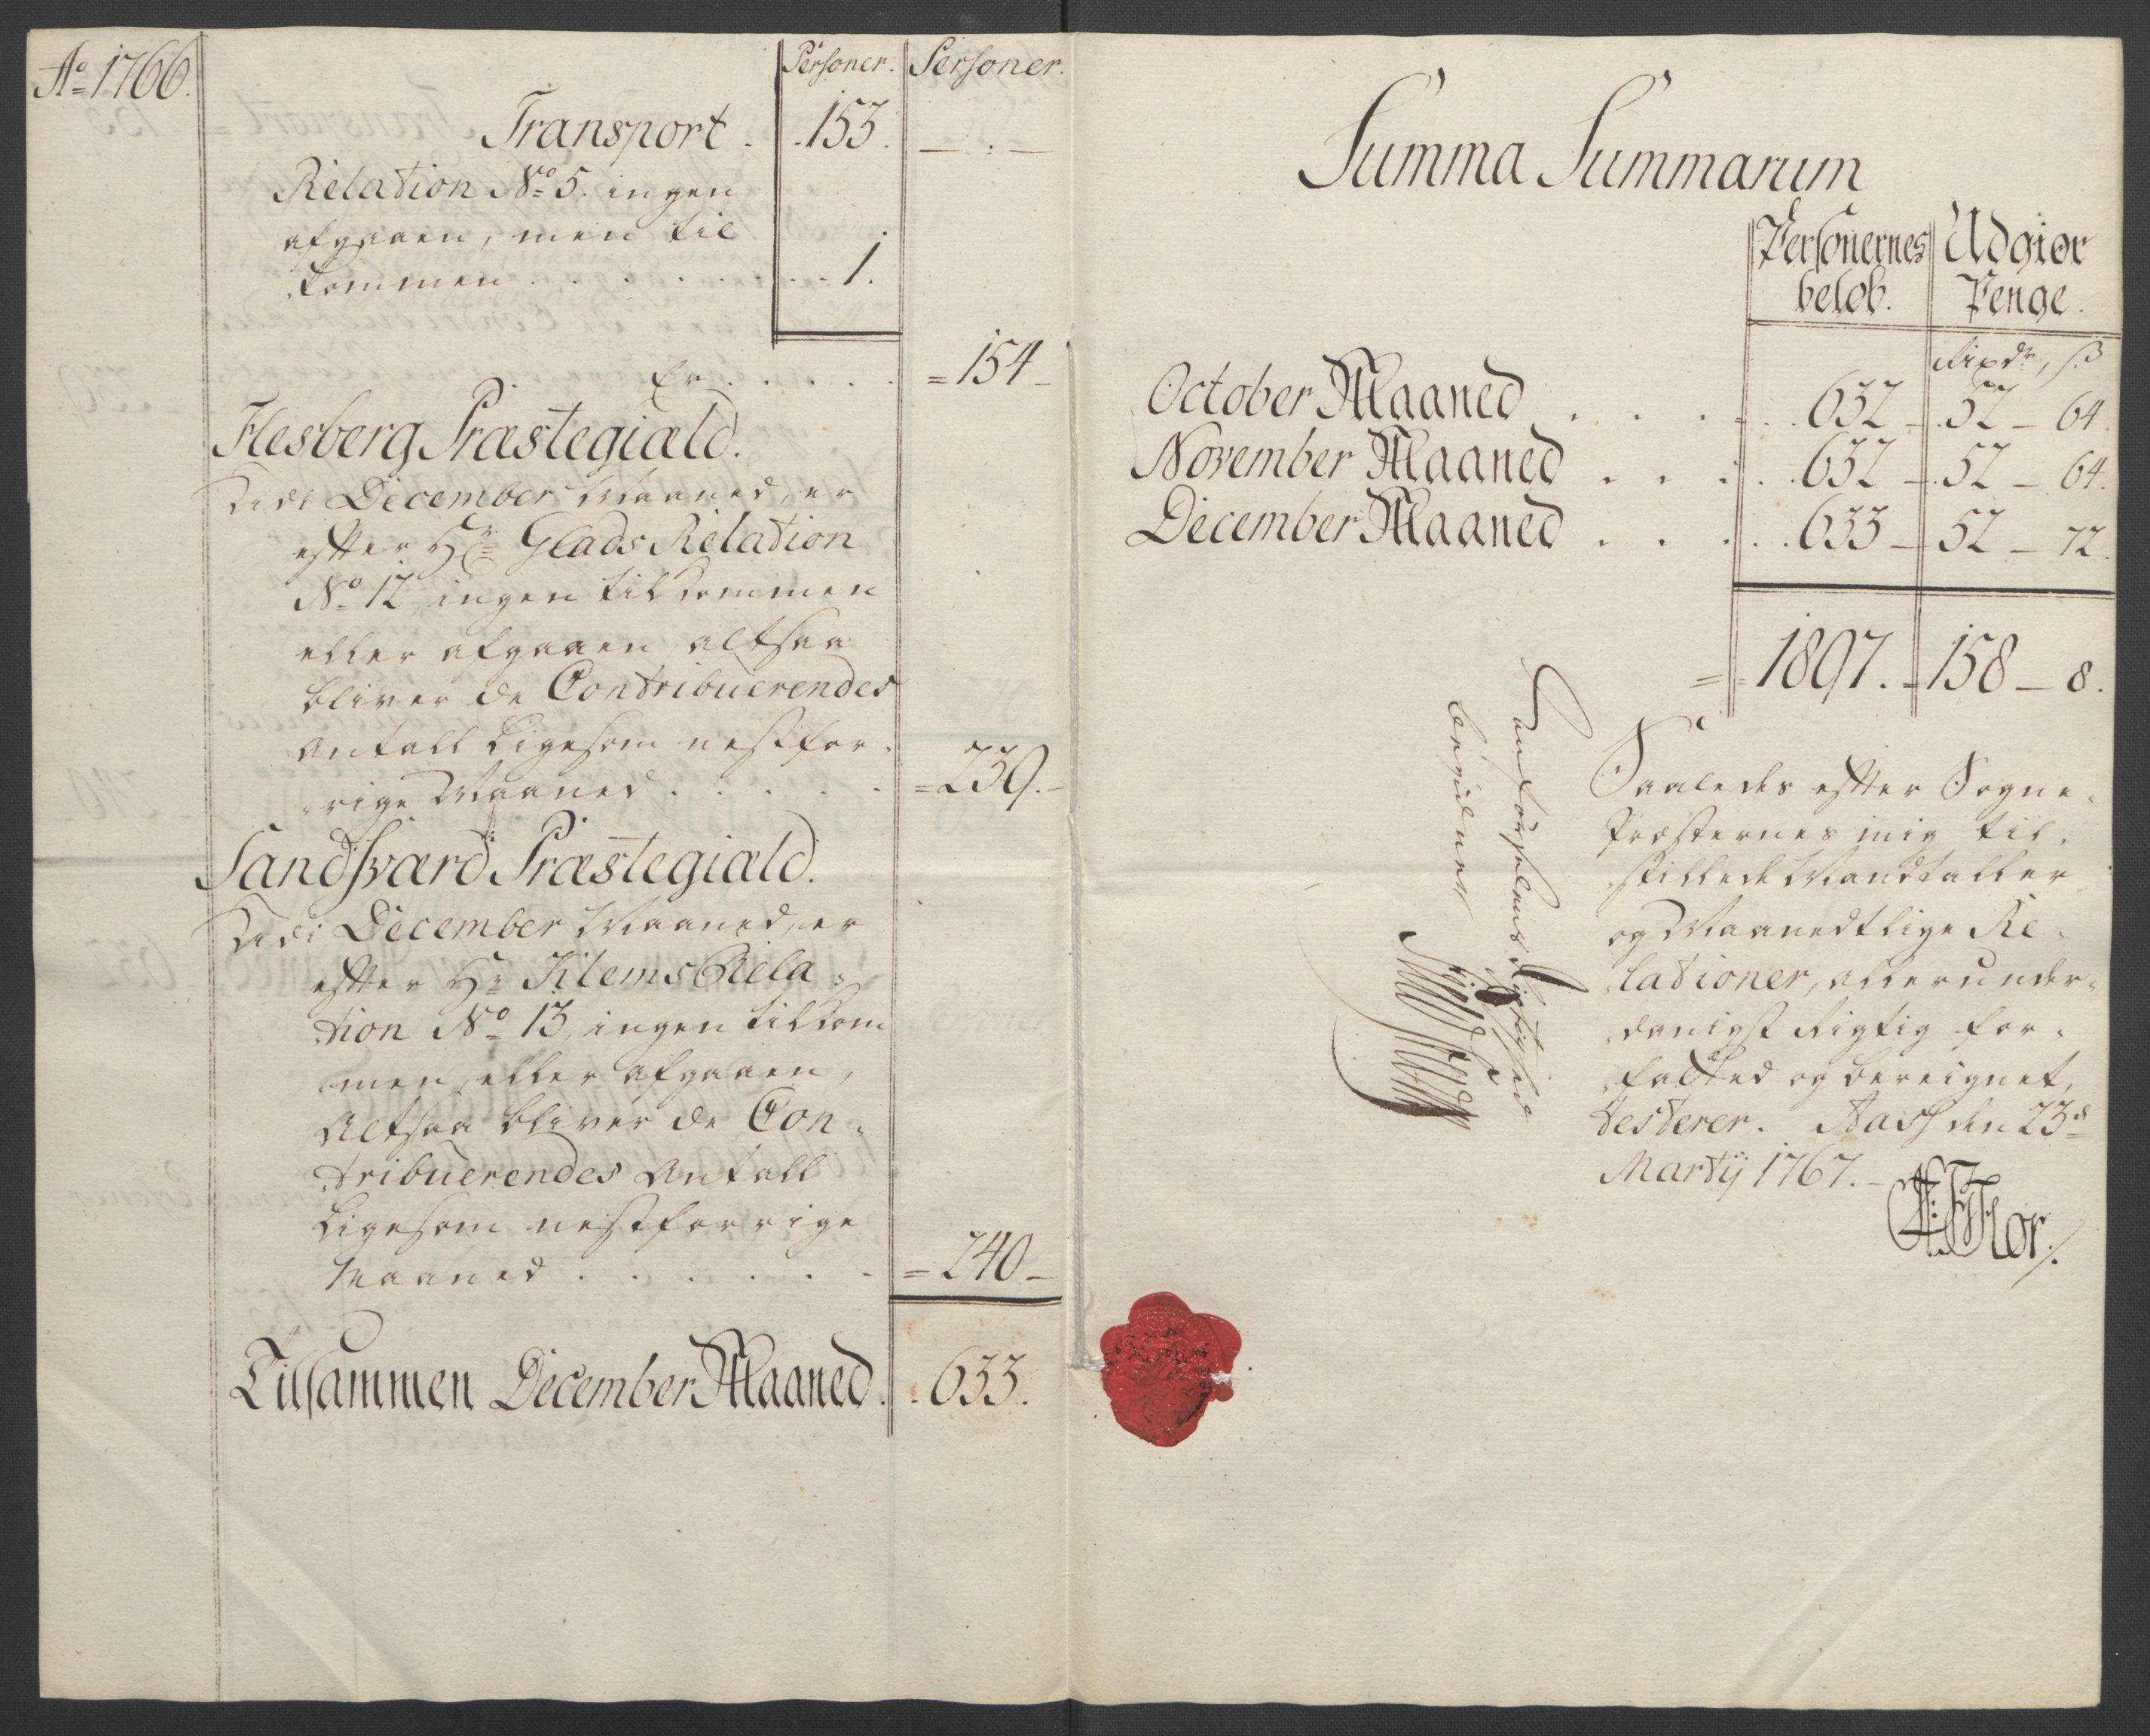 Ao 1766.
Personer. Personer.
Transport . . 153. — . —
Relation No 5. ingen
afgaaen, men til
kommen . . . . . . . 1.
Er . . . . . = 154 –
Flesberg Præstegiæld.
Udi December Maaned, er
efter Hr Glads Relation
No 12, ingen tilkommen
eller afgaaen altsaa
bliver de Contribuerendes
Antall Ligesom nestfor-
rige Maaned . . . . . = 239. –
Sandsværd Præstegiæld.
Udi December Maaned, er
efter Hr Tilems Rela-
tion No 13, ingen tilkom
men, eller afgaaen,
Altsaa bliver de Con-
tribuerendes Antall
Ligesom nestforrige
Maaned . . . . . . = 240 –
Tilsammen December Maaned . . 633.
Summa Summarum
Personernes Udgiør
beløb. Penge.
Rixdr, s
October Maaned . . . . . 632 – 52 – 64.
November Maaned . . . . . 632 – 52 – 64.
December Maaned . . . . . 633 – 52 – 72.
= 1897. – 158 – 8.
Saaledes efter Sogne-
Præsternes mig til-
stillede Mandtaller
og Maanedtlige Re-
lationer, allerunder-
danigst Rigtig for-
fatted og bereignet,
testerer. Aass den 23de
Martij 1767. –
Flor ./.
Anførselens Rigtighed
bevidner